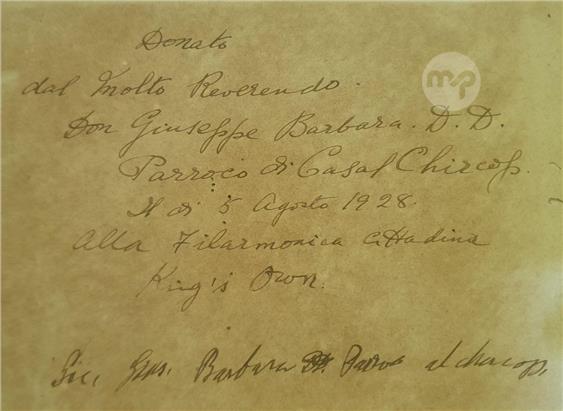 Donato
dal Molto Reverendo.
Don Giuseppe Barbara. D. D.
Parroco di Casal Chircop.
Il di 5 Agosto 1928.
Alla Filarmonica cittadina
King's Own.
Sic, Gius. Barbara Parro
mp